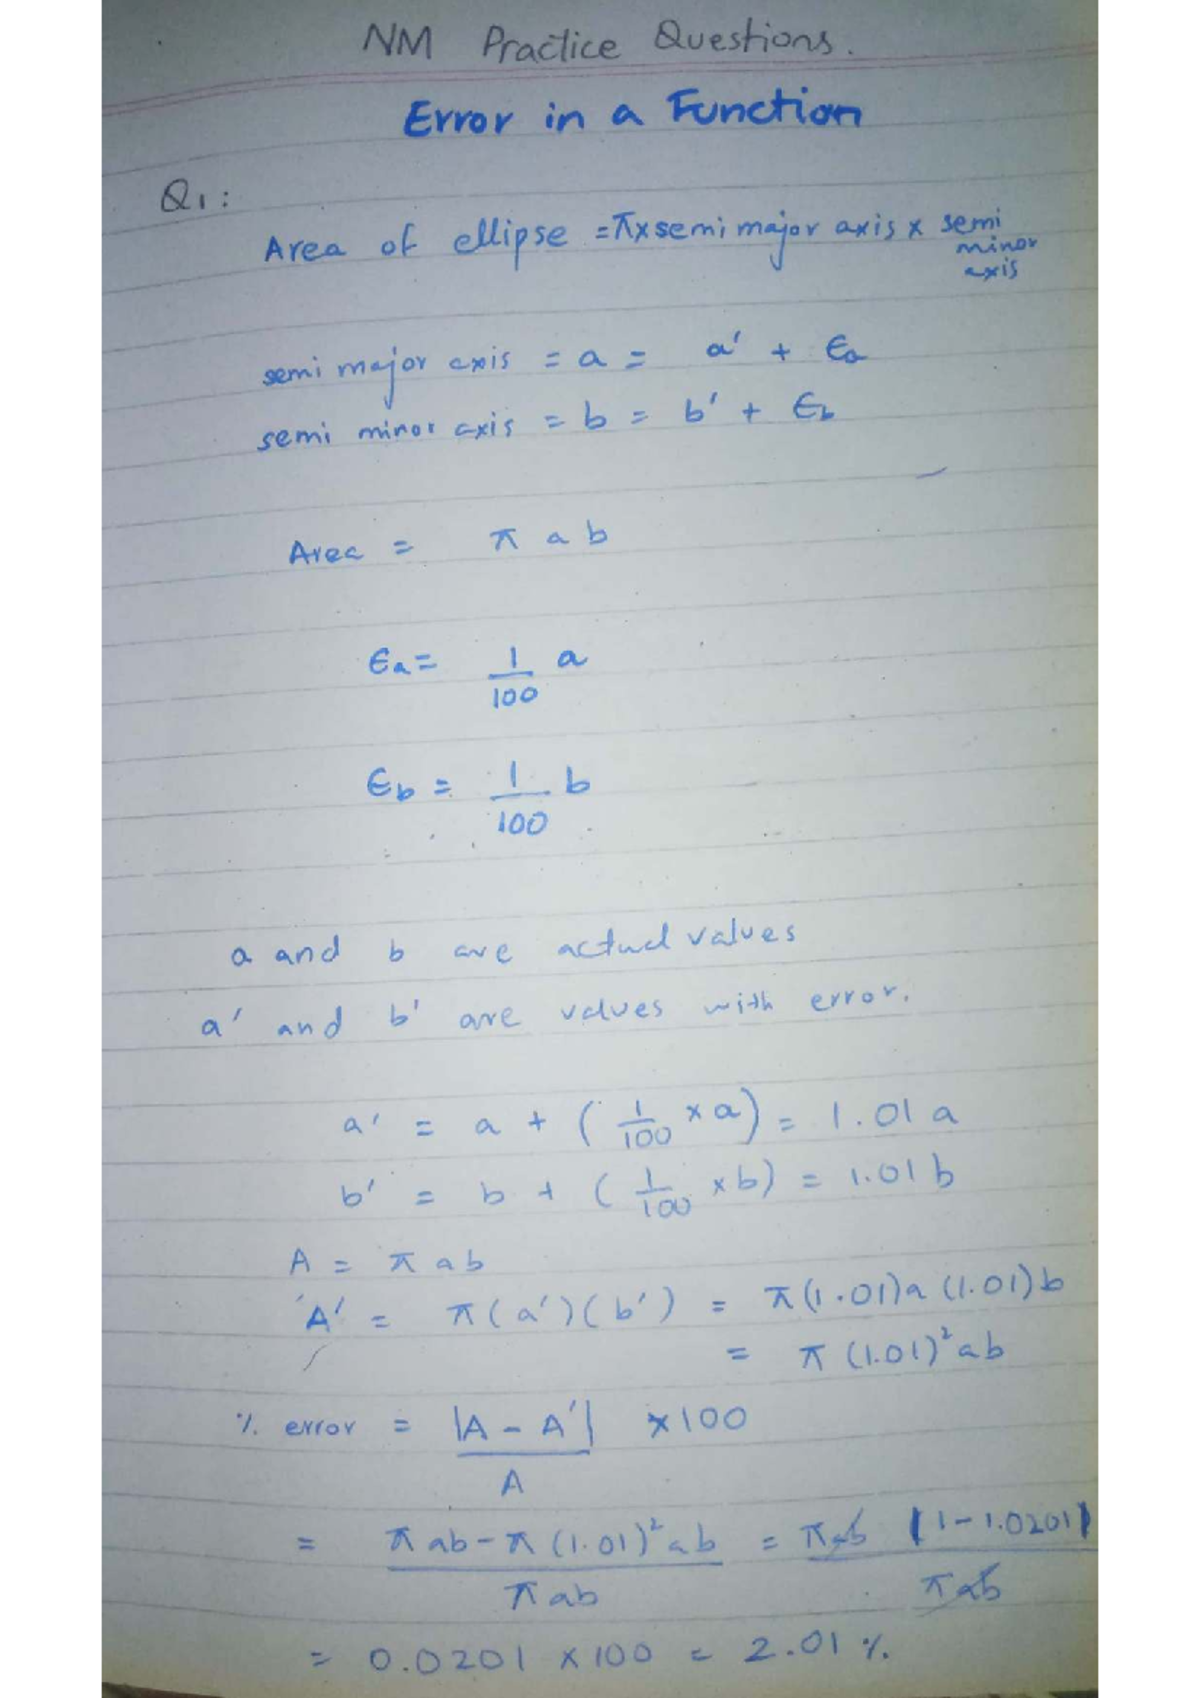 NM Practice Questions.
Error in a Function
Q1:
Area of ellipse = π x semi major axis x semi
minor
axis
semi major axis = a = a' + ϵa
semi minor axis = b = b' + ϵb
Area = π a b
ϵa = 1/100 a
ϵb = 1/100 b
a and b are actual values
a' and b' are values with error.
a' = a + (1/100 x a) = 1.01 a
b' = b + (1/100 x b) = 1.01 b
A = π a b
A' = π (a') (b') = π (1.01)a (1.01) b
= π (1.01)² ab
% error = |A - A'| / A x 100
= π ab - π (1.01)² ab / π ab = π ab |1 - 1.0201| / π ab
= 0.0201 x 100 = 2.01 %